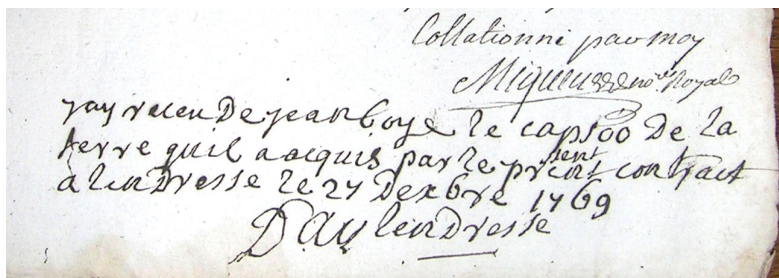 Collationné par moy
Miqueu no.re Royal
Jay receu De jean boye le capsoo De la
terre quil a acquis par le present contract
a lendresse le 27 Dexbre 1769
Daylendresse